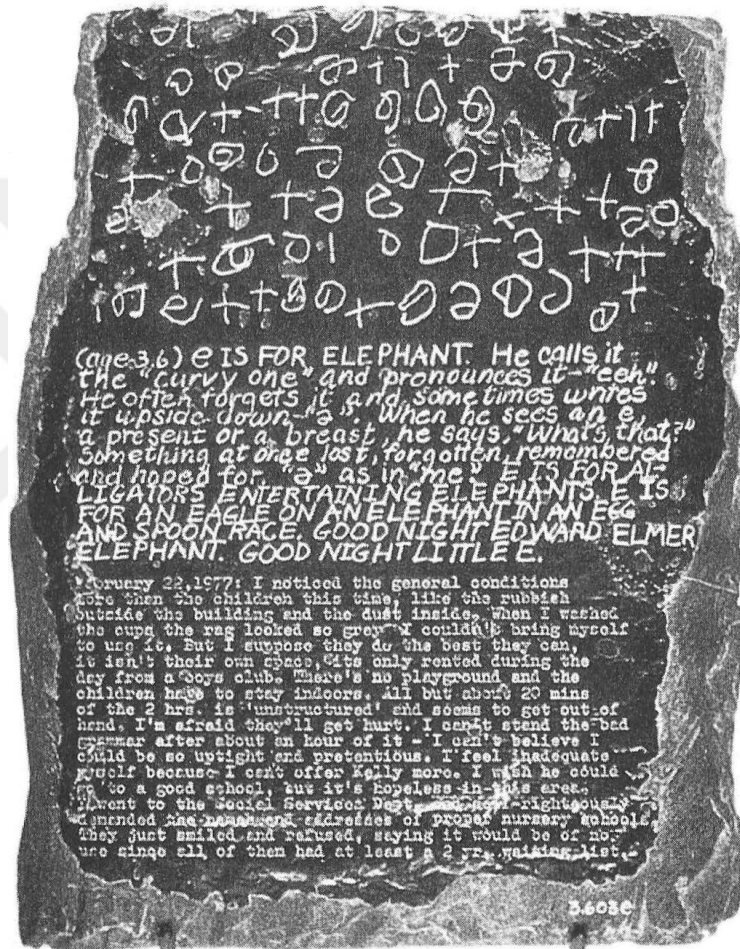 (age 3.6) e IS FOR ELEPHANT. He calls it
the "curvy one" and pronounces it "eeh".
He often forgets it and sometimes writes
it upside down "ə". When he sees an e,
a present or a breast, he says, "What's that?"
Something at once lost, forgotten, remembered
and hoped for. "ə" as in "me." E IS FOR AL-
LIGATORS ENTERTAINING ELEPHANTS. E IS
FOR AN EAGLE ON AN ELEPHANT IN AN EGG
AND SPOON RACE. GOOD NIGHT EDWARD ELMER
ELEPHANT. GOOD NIGHT LITTLE E.
February 22,1977: I noticed the general conditions
more than the children this time, like the rubbish
outside the building and the dust inside. When I washed
the cups the rag looked so grey I couldn't bring myself
to use it. But I suppose they do the best they can,
it isn't their own space, its only rented during the
day from a boys club. There's no playground and the
children have to stay indoors. All but about 20 mins
of the 2 hrs. is 'unstructured' and seems to get out of
hand. I'm afraid they'll get hurt. I can't stand the bad
grammar after about an hour of it - I can't believe I
could be so uptight and pretentious. I feel inadequate
myself because I can't offer Kelly more. I wish he could
go to a good school, but it's hopeless in this area.
I went to the Social Services Dept. and self-righteously
demanded the names and addresses of proper nursery schools.
They just smiled and refused, saying it would be of no
use since all of them had at least a 2 yr. waiting list.
3.603e